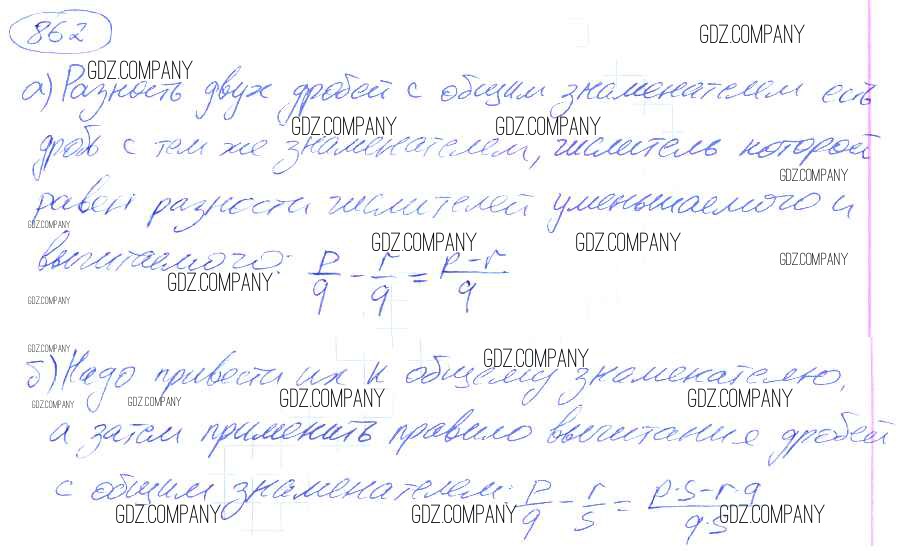 862
GDZ.COMPANY
GDZ.COMPANY
а) Разность двух дробей с общим знаменателем есть
GDZ.COMPANY GDZ.COMPANY
дробь с тем же знаменателем, числитель которой
GDZ.COMPANY
равен разности числителей уменьшаемого и
GDZ.COMPANY
GDZ.COMPANY GDZ.COMPANY
вычитаемого: p/q - r/q = p-r/q
GDZ.COMPANY
GDZ.COMPANY
GDZ.COMPANY
GDZ.COMPANY GDZ.COMPANY
б) Надо привести их к общему знаменателю,
GDZ.COMPANY GDZ.COMPANY GDZ.COMPANY GDZ.COMPANY
а затем применить правило вычитание дробей
с общим знаменателем: p/q - r/s = p·s-r·q/q·s
GDZ.COMPANY GDZ.COMPANY GDZ.COMPANY